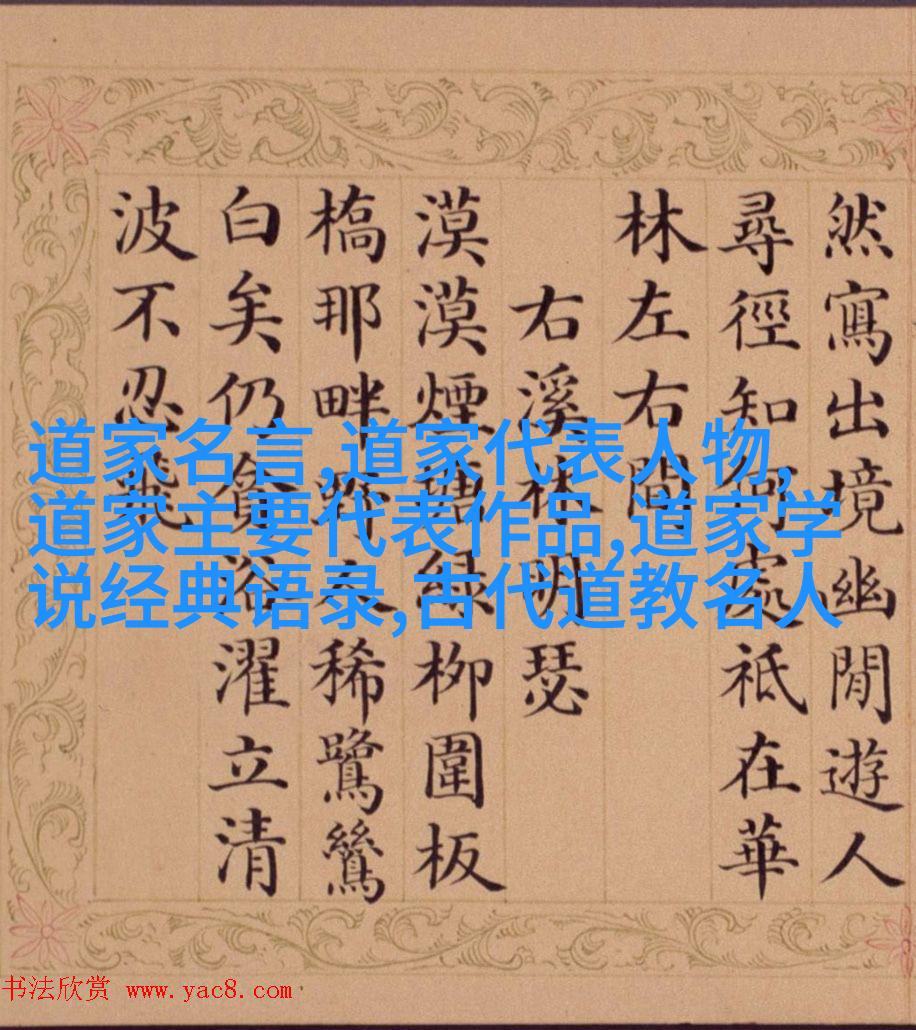 然寫出境幽閒遊人
尋徑知何處祗在華
林左右間
右溪林明瑟
漠漠煙塘綠柳圍板
槗那畔野稀鷺鷥
白矣仍貪浴濯立清
波不忍飛
道家名言,道家代表人物,
道家主要代表作品,道家学
说经典语录,古代道教名人
书法欣赏 www.yac8.com